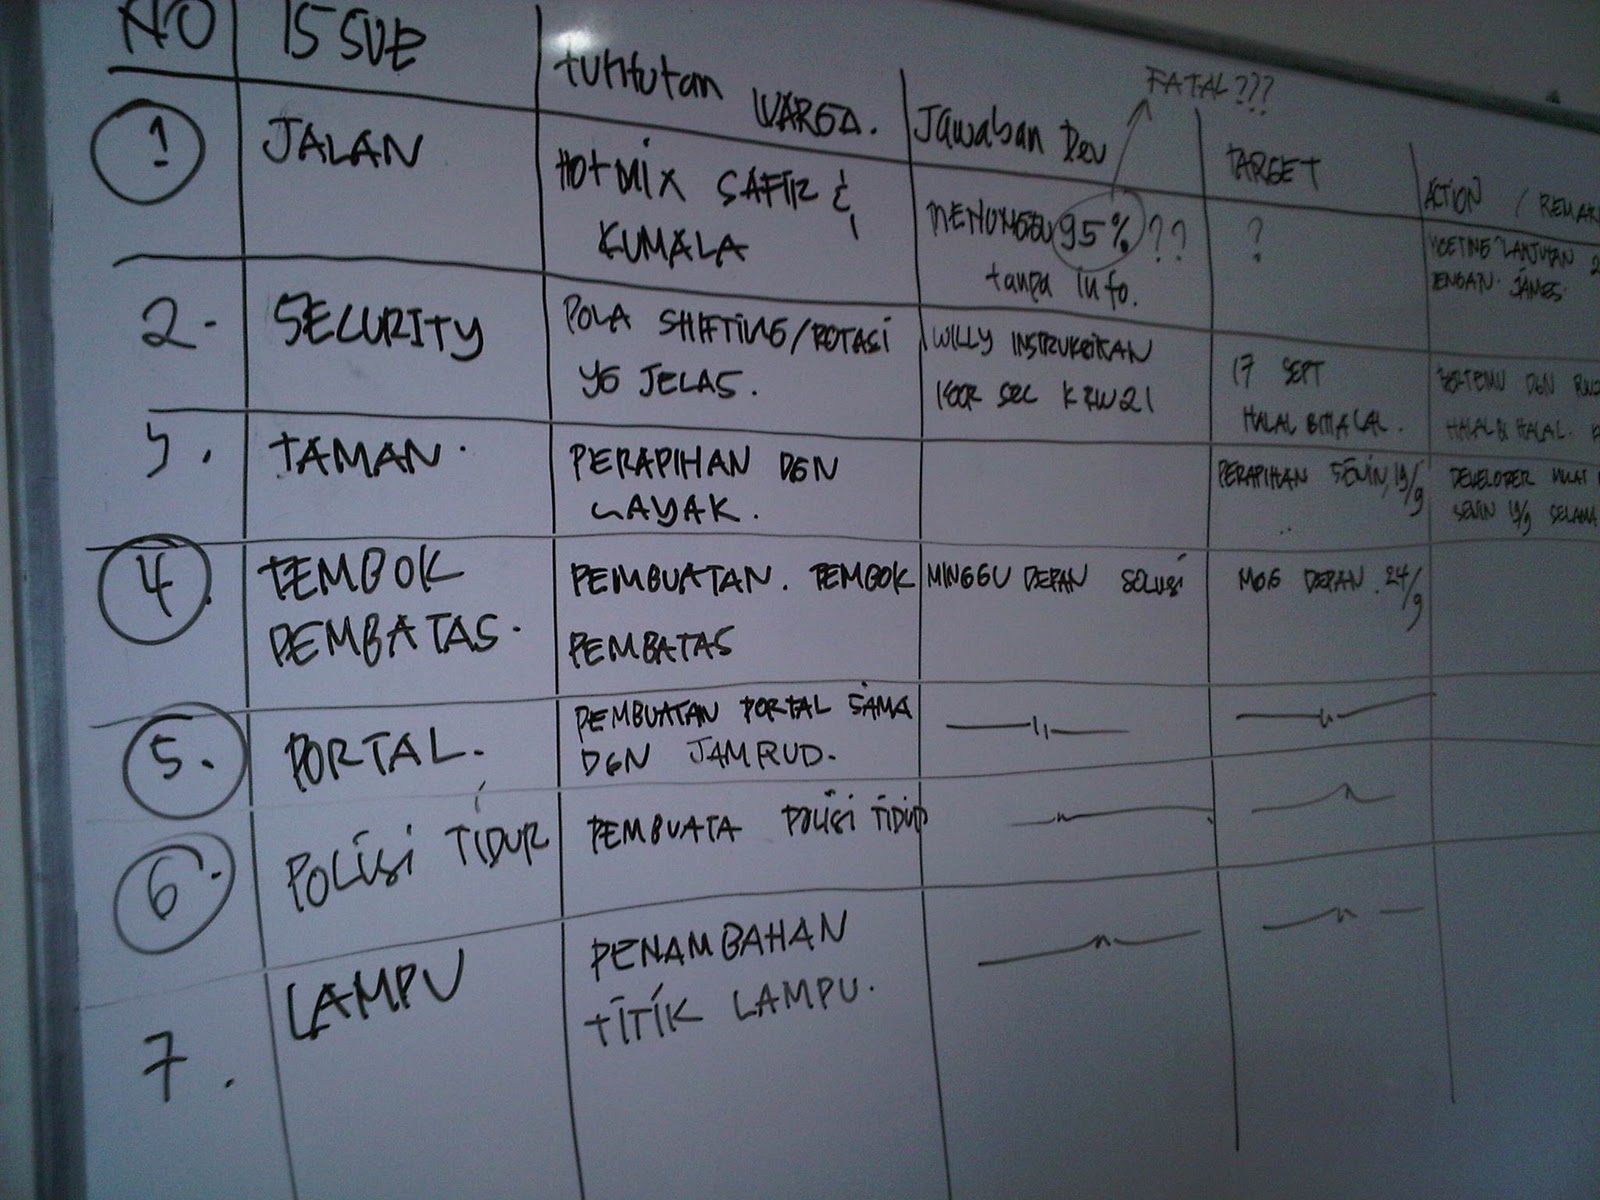 NO ISSUE tuntutan WARGA. Jawaban Dev TARGET ACTION / REMARK
FATAL???
1 JALAN HOTMIX SAFIR &
KUMALA
MENUNGGU 95% ??
tanpa info.
?
MEETING LANJUTAN
DENGAN JAMES.
2. SECURITY POLA SHIFTING/ROTASI
YG JELAS.
WILLY INSTRUKSIKAN
KOOR SEC K RW21
17 SEPT
HALAL BIHALAL.
BERTEMU DGN
HALAL BI HALAL.
3. TAMAN. PERAPIHAN DGN
LAYAK.
PERAPIHAN SENIN, 19/9
DEVELOPER MULAI
SENIN 19/9 SELAMA
4. TEMBOK
PEMBATAS.
PEMBUATAN. TEMBOK
PEMBATAS
MINGGU DEPAN SOLUSI
MGG DEPAN. 24/9
5. PORTAL. PEMBUATAN PORTAL SAMA
DGN JAMRUD.
6. POLISI TIDUR PEMBUATA POLISI TIDUR
7. LAMPU PENAMBAHAN
TITIK LAMPU.